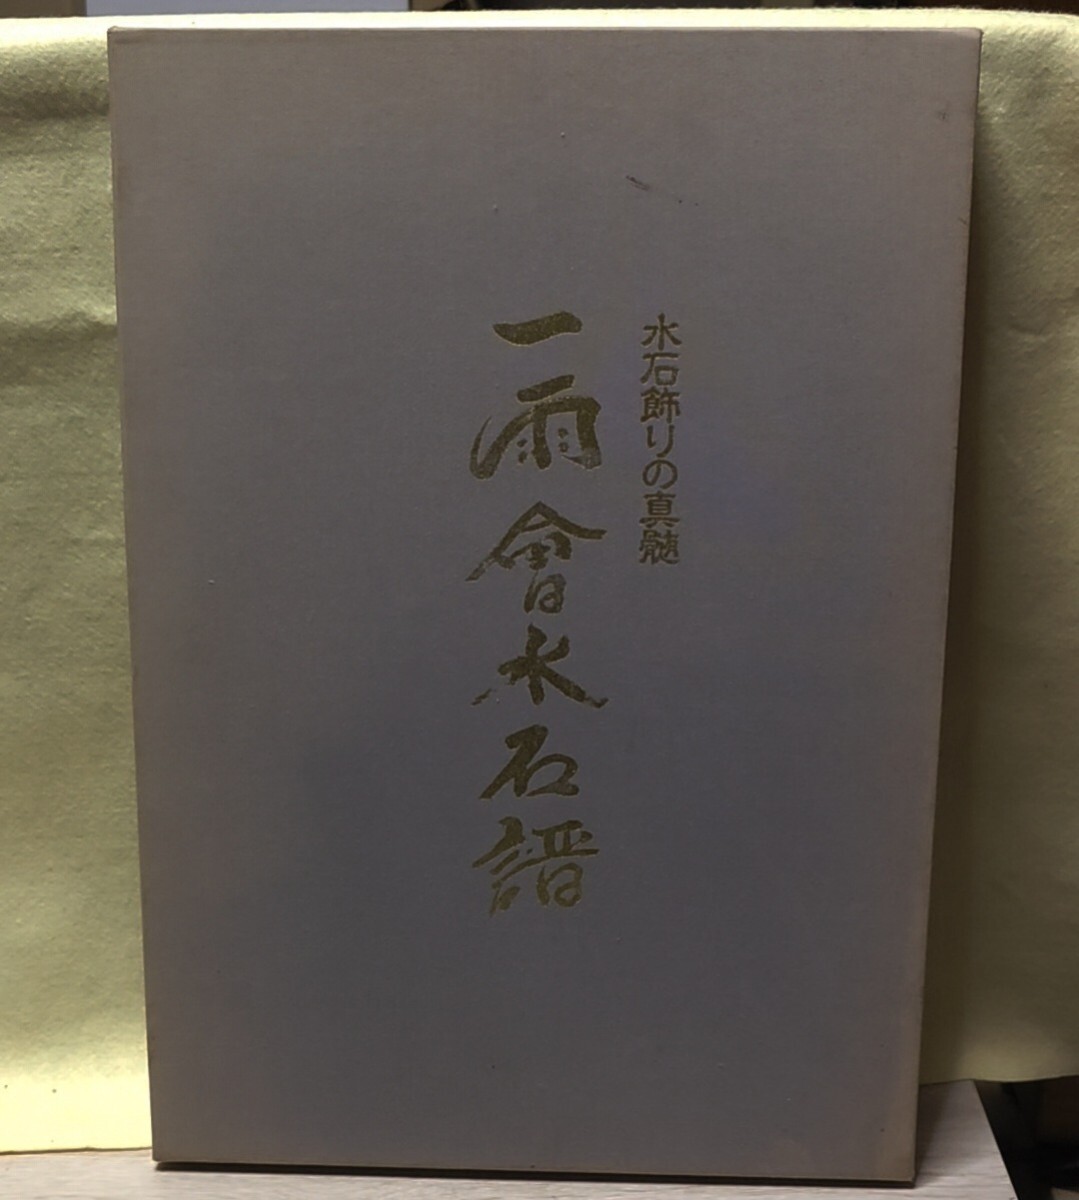 水石飾りの真髄
一雨會水石譜